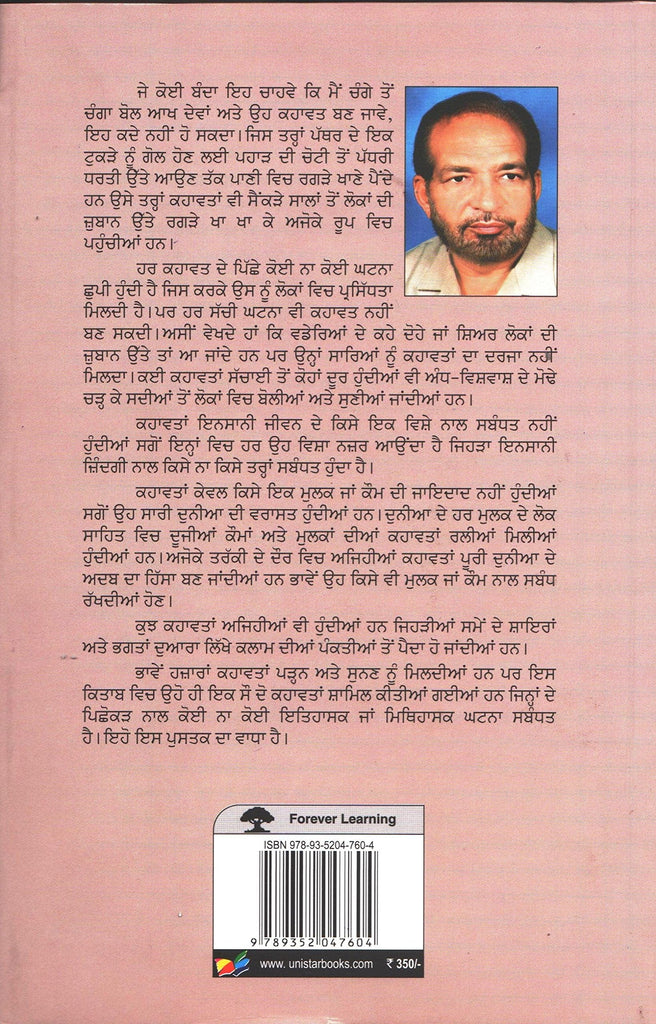 ਜੇ ਕੋਈ ਬੰਦਾ ਇਹ ਚਾਹਵੇ ਕਿ ਮੈਂ ਚੰਗੇ ਤੋਂ
ਚੰਗਾ ਬੋਲ ਆਖ ਦੇਵਾਂ ਅਤੇ ਉਹ ਕਹਾਵਤ ਬਣ ਜਾਵੇ,
ਇਹ ਕਦੇ ਨਹੀਂ ਹੋ ਸਕਦਾ। ਜਿਸ ਤਰ੍ਹਾਂ ਪੱਥਰ ਦੇ ਇਕ
ਟੁਕੜੇ ਨੂੰ ਗੋਲ ਹੋਣ ਲਈ ਪਹਾੜ ਦੀ ਚੋਟੀ ਤੋਂ ਪੱਧਰੀ
ਧਰਤੀ ਉੱਤੇ ਆਉਣ ਤੱਕ ਪਾਣੀ ਵਿਚ ਰਗੜੇ ਖਾਣੇ ਪੈਂਦੇ
ਹਨ ਉਸੇ ਤਰ੍ਹਾਂ ਕਹਾਵਤਾਂ ਵੀ ਸੈਂਕੜੇ ਸਾਲਾਂ ਤੋਂ ਲੋਕਾਂ ਦੀ
ਜ਼ੁਬਾਨ ਉੱਤੇ ਰਗੜੇ ਖਾ ਖਾ ਕੇ ਅਜੋਕੇ ਰੂਪ ਵਿਚ
ਪਹੁੰਚੀਆਂ ਹਨ।
ਹਰ ਕਹਾਵਤ ਦੇ ਪਿੱਛੇ ਕੋਈ ਨਾ ਕੋਈ ਘਟਨਾ
ਛੁਪੀ ਹੁੰਦੀ ਹੈ ਜਿਸ ਕਰਕੇ ਉਸ ਨੂੰ ਲੋਕਾਂ ਵਿਚ ਪ੍ਰਸਿੱਧਤਾ
ਮਿਲਦੀ ਹੈ। ਪਰ ਹਰ ਸੱਚੀ ਘਟਨਾ ਵੀ ਕਹਾਵਤ ਨਹੀਂ
ਬਣ ਸਕਦੀ। ਅਸੀਂ ਵੇਖਦੇ ਹਾਂ ਕਿ ਵਡੇਰਿਆਂ ਦੇ ਕਹੇ ਦੋਹੇ ਜਾਂ ਸ਼ਿਅਰ ਲੋਕਾਂ ਦੀ
ਜ਼ੁਬਾਨ ਉੱਤੇ ਤਾਂ ਆ ਜਾਂਦੇ ਹਨ ਪਰ ਉਨ੍ਹਾਂ ਸਾਰਿਆਂ ਨੂੰ ਕਹਾਵਤਾਂ ਦਾ ਦਰਜਾ ਨਹੀਂ
ਮਿਲਦਾ। ਕਈ ਕਹਾਵਤਾਂ ਸੱਚਾਈ ਤੋਂ ਕੋਹਾਂ ਦੂਰ ਹੁੰਦੀਆਂ ਵੀ ਅੰਧ-ਵਿਸ਼ਵਾਸ਼ ਦੇ ਮੋਢੇ
ਚੜ੍ਹ ਕੇ ਸਦੀਆਂ ਤੋਂ ਲੋਕਾਂ ਵਿਚ ਬੋਲੀਆਂ ਅਤੇ ਸੁਣੀਆਂ ਜਾਂਦੀਆਂ ਹਨ।
ਕਹਾਵਤਾਂ ਇਨਸਾਨੀ ਜੀਵਨ ਦੇ ਕਿਸੇ ਇਕ ਵਿਸ਼ੇ ਨਾਲ ਸਬੰਧਤ ਨਹੀਂ
ਹੁੰਦੀਆਂ ਸਗੋਂ ਇਨ੍ਹਾਂ ਵਿਚ ਹਰ ਉਹ ਵਿਸ਼ਾ ਨਜ਼ਰ ਆਉਂਦਾ ਹੈ ਜਿਹੜਾ ਇਨਸਾਨੀ
ਜ਼ਿੰਦਗੀ ਨਾਲ ਕਿਸੇ ਨਾ ਕਿਸੇ ਤਰ੍ਹਾਂ ਸਬੰਧਤ ਹੁੰਦਾ ਹੈ।
ਕਹਾਵਤਾਂ ਕੇਵਲ ਕਿਸੇ ਇਕ ਮੁਲਕ ਜਾਂ ਕੌਮ ਦੀ ਜਾਇਦਾਦ ਨਹੀਂ ਹੁੰਦੀਆਂ
ਸਗੋਂ ਉਹ ਸਾਰੀ ਦੁਨੀਆ ਦੀ ਵਰਾਸਤ ਹੁੰਦੀਆਂ ਹਨ। ਦੁਨੀਆ ਦੇ ਹਰ ਮੁਲਕ ਦੇ ਲੋਕ
ਸਾਹਿਤ ਵਿਚ ਦੂਜੀਆਂ ਕੌਮਾਂ ਅਤੇ ਮੁਲਕਾਂ ਦੀਆਂ ਕਹਾਵਤਾਂ ਰਲੀਆਂ ਮਿਲੀਆਂ
ਹੁੰਦੀਆਂ ਹਨ। ਅਜੋਕੇ ਤਰੱਕੀ ਦੇ ਦੌਰ ਵਿਚ ਅਜਿਹੀਆਂ ਕਹਾਵਤਾਂ ਪੂਰੀ ਦੁਨੀਆ ਦੇ
ਅਦਬ ਦਾ ਹਿੱਸਾ ਬਣ ਜਾਂਦੀਆਂ ਹਨ ਭਾਵੇਂ ਉਹ ਕਿਸੇ ਵੀ ਮੁਲਕ ਜਾਂ ਕੌਮ ਨਾਲ ਸਬੰਧ
ਰੱਖਦੀਆਂ ਹੋਣ।
ਕੁਝ ਕਹਾਵਤਾਂ ਅਜਿਹੀਆਂ ਵੀ ਹੁੰਦੀਆਂ ਹਨ ਜਿਹੜੀਆਂ ਸਮੇਂ ਦੇ ਸ਼ਾਇਰਾਂ
ਅਤੇ ਭਗਤਾਂ ਦੁਆਰਾ ਲਿੱਖੇ ਕਲਾਮ ਦੀਆਂ ਪੰਕਤੀਆਂ ਤੋਂ ਪੈਦਾ ਹੋ ਜਾਂਦੀਆਂ ਹਨ।
ਭਾਵੇਂ ਹਜ਼ਾਰਾਂ ਕਹਾਵਤਾਂ ਪੜ੍ਹਨ ਅਤੇ ਸੁਨਣ ਨੂੰ ਮਿਲਦੀਆਂ ਹਨ ਪਰ ਇਸ
ਕਿਤਾਬ ਵਿਚ ਉਹੋ ਹੀ ਇਕ ਸੌ ਦੋ ਕਹਾਵਤਾਂ ਸ਼ਾਮਿਲ ਕੀਤੀਆਂ ਗਈਆਂ ਹਨ ਜਿਨ੍ਹਾਂ ਦੇ
ਪਿਛੋਕੜ ਨਾਲ ਕੋਈ ਨਾ ਕੋਈ ਇਤਿਹਾਸਕ ਜਾਂ ਮਿਥਿਹਾਸਕ ਘਟਨਾ ਸਬੰਧਤ
ਹੈ। ਇਹੋ ਇਸ ਪੁਸਤਕ ਦਾ ਵਾਧਾ ਹੈ।
Forever Learning
ISBN 978-93-5204-760-4
9 789352 047604
www. unistarbooks.com ₹ 350/-